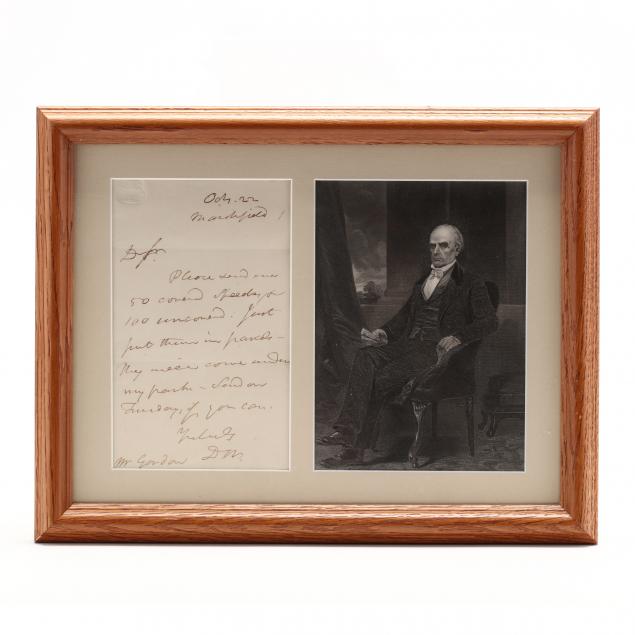 Oct. 22
Marshfield
D Sr.
Please send me
50 covered Speeches, &
100 uncovered. Just
put them in parcels -
they will come under
my frank - Send on
Tuesday, if you can.
Yrs
Mr Gordon D W.